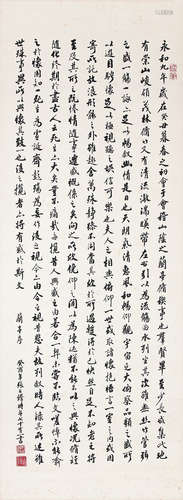 永和九年歲在癸丑暮春之初會于會稽山陰之蘭亭脩禊事也羣賢畢至少長咸集此地
有崇山峻領茂林脩竹又有清流激湍暎帶左右引以為流觴曲水列坐其次雖無絲竹管弦之
盛一觴一詠亦足以暢敘幽情是日也天朗氣清惠風和暢仰觀宇宙之大俯察品類之盛所以
遊目騁懷足以極視聽之娛信可樂也夫人之相與俯仰一世或取諸懷抱悟言一室之內或因
寄所託放浪形骸之外雖趣舍萬殊靜躁不同當其欣於所遇暫得於己快然自足不知老之將
至及其所之既惓情隨事遷感慨係之矣向之所欣俛仰之間以為陳迹猶不能不以之興懷況脩短
隨化終期於盡古人云死生亦大矣豈不痛哉每攬昔人興感之由若合一契未嘗不臨文嗟悼不能喻
之於懷固知一死生為虛誕齊彭殤為妄作後之視今亦由今之視昔悲夫故列敘時人錄其所述雖
世殊事異所以興懷其致一也後之攬者亦將有感於斯文
蘭亭序